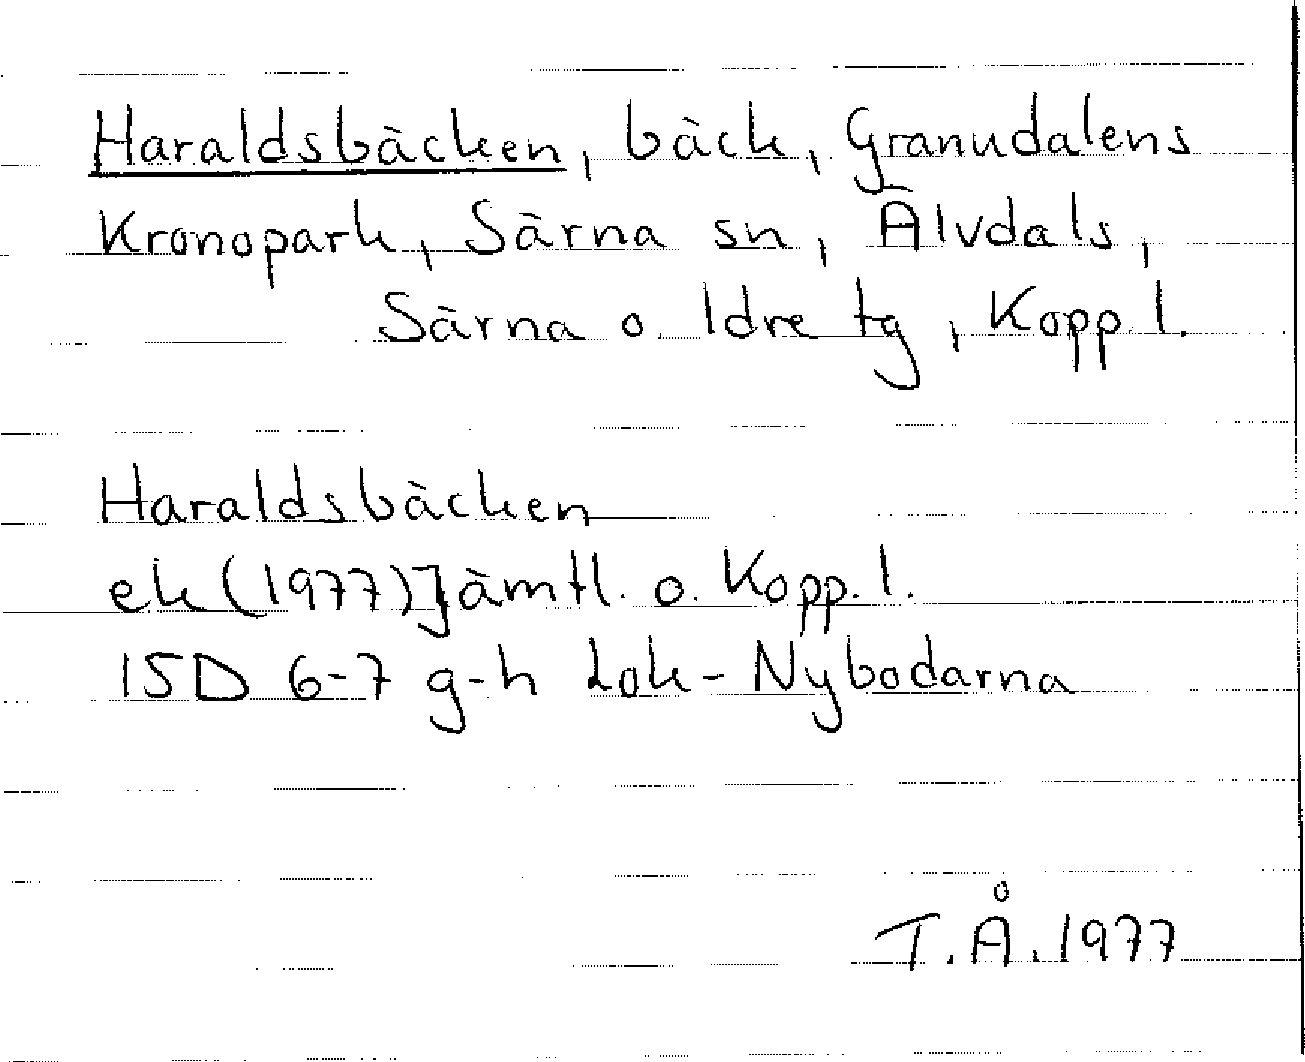 Haraldsbäcken, bäck, Granudalens
Kronopark, Särna sn, Älvdals,
Särna o. Idre tg, Kopp. l.
Haraldsbäcken
ek (1977) Jämtl. o. Kopp. l.
15D 6-7 g-h Lok-Nybodarna
T.Å. 1977